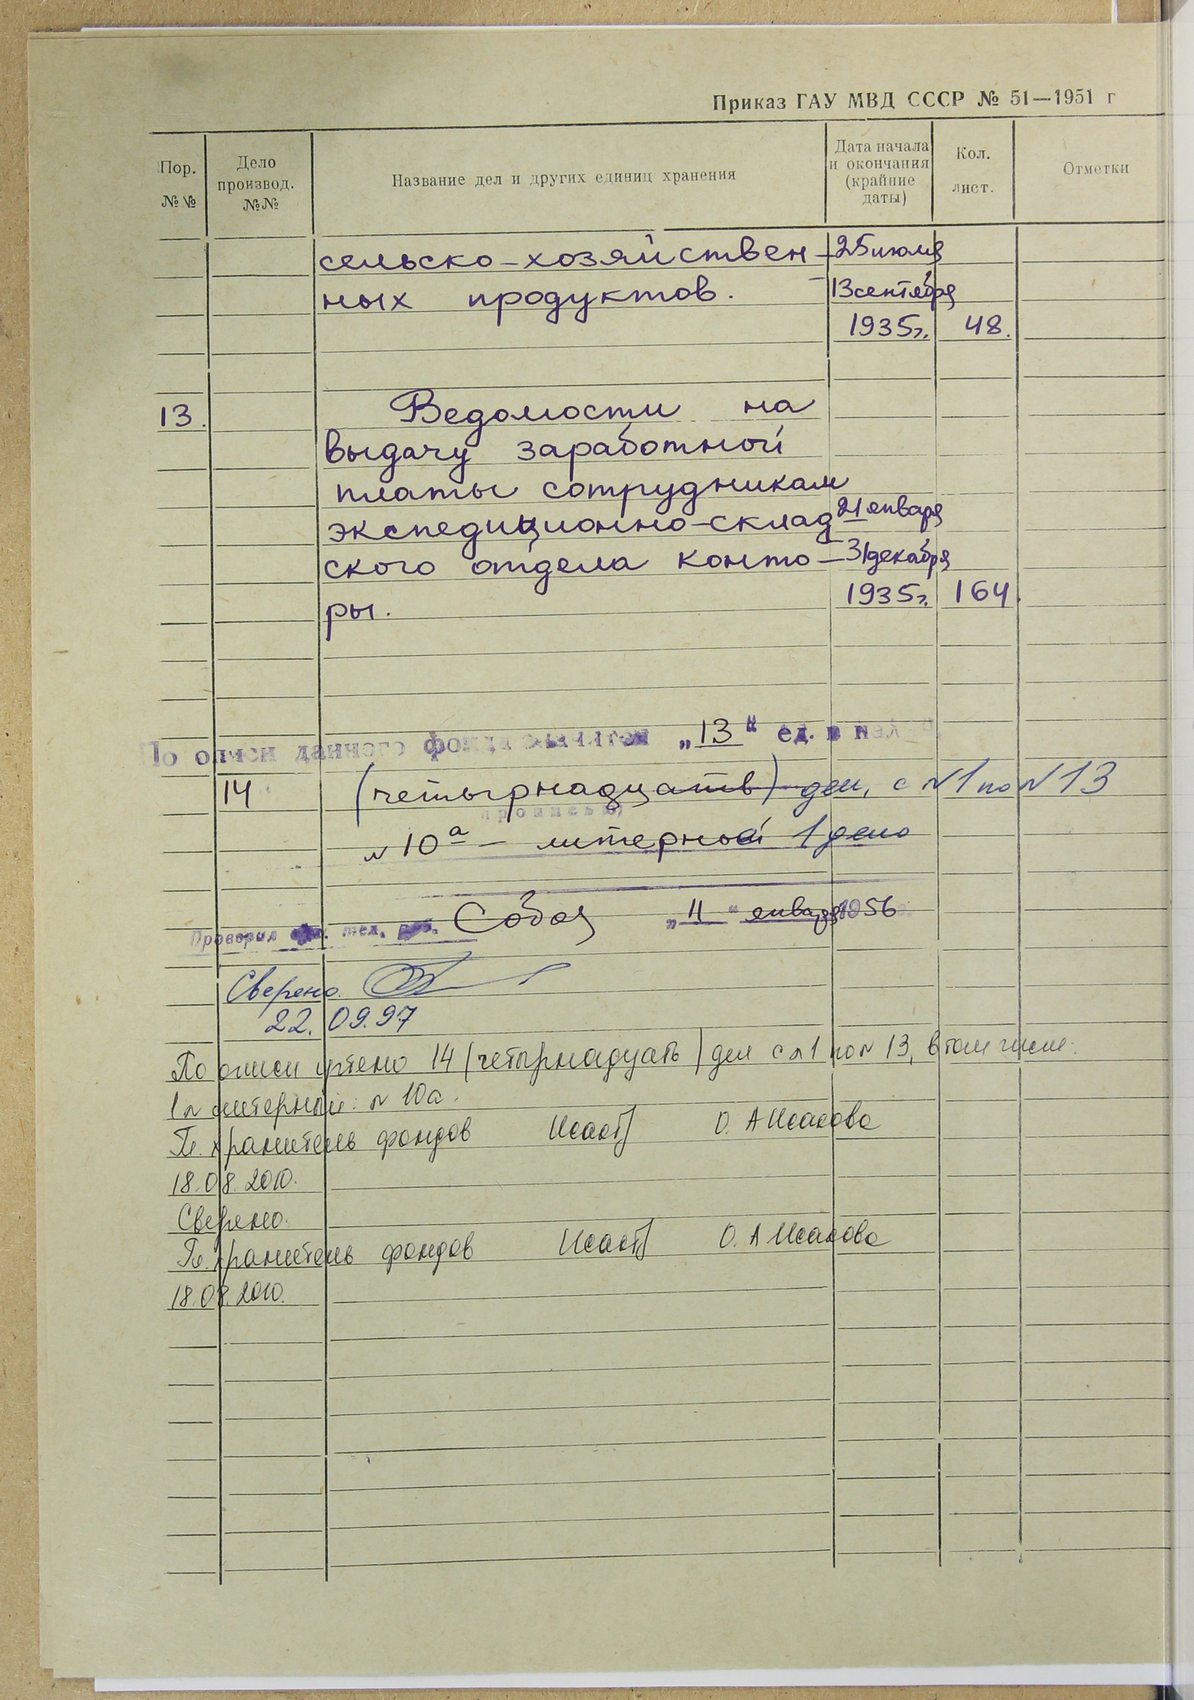 Приказ ГАУ МВД СССР № 51—1951 г
Пор. №№
Дело производ. №№
Название дел и других единиц хранения
Дата начала и окончания (крайние даты)
Кол. лист.
Отметки
сельско-хозяйствен- 25 июля
ных продуктов. 13 сентября
1935г. 48.
13. Ведомости на
выдачу заработной
платы сотрудникам
экспедиционно-склад 21 января
ского отдела конто- 31 декабря
ры. 1935г. 164.
По описи данного фонда „13" ед.
14 (четырнадцать) дел, с №1 по №13
(прописью)
№ 10а – литерный 1 дело
Проверил Собой „11" января 1956
Сверено.
22.09.97
По описи учтено 14 (четырнадцать) дел с №1 по № 13, в том числе:
литерный: № 10а.
Гл. хранитель фондов О. А Исакова
18.08.2010.
Сверено.
Гл. хранитель фондов О. А Исакова
18.08.2010.